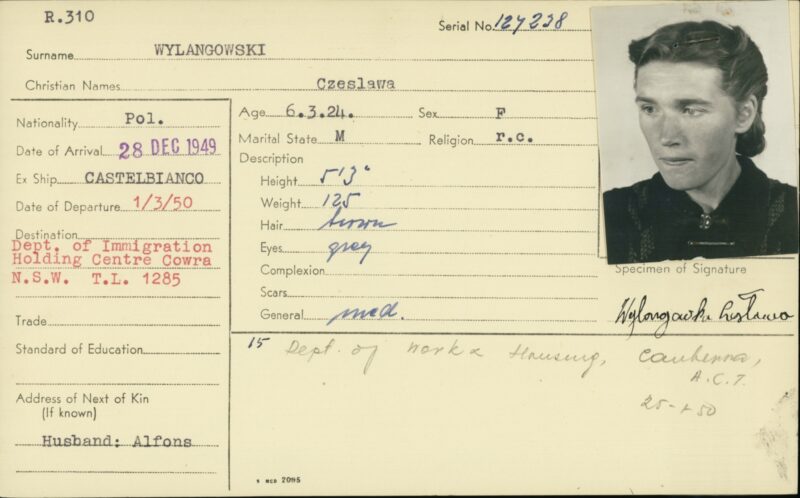 R.310
Serial No. 127238
Surname WYLANGOWSKI
Christian Names Czeslawa
Nationality Pol.
Date of Arrival 28 DEC 1949
Ex Ship CASTELBIANCO
Date of Departure 1/3/50
Destination
Dept. of Immigration
Holding Centre Cowra
N.S.W. T.L. 1285
Trade
Standard of Education
Address of Next of Kin
(If known)
Husband: Alfons
Age 6.3.24. Sex F
Marital State M Religion r.c.
Description
Height 5'3"
Weight 125
Hair brown
Eyes grey
Complexion
Scars
General med.
Specimen of Signature
15 Dept. of Work & Housing, Canberra,
A.C.T.
50
5 MCD 2095